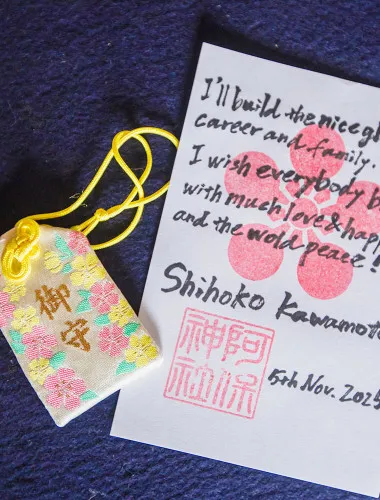 御守
I'll build the nice gl
career and family.
I wish everybody b
with much love & happ
and the wold peace!
Shihoko Kawamoto
阿保
神社
5th Nov. 2025